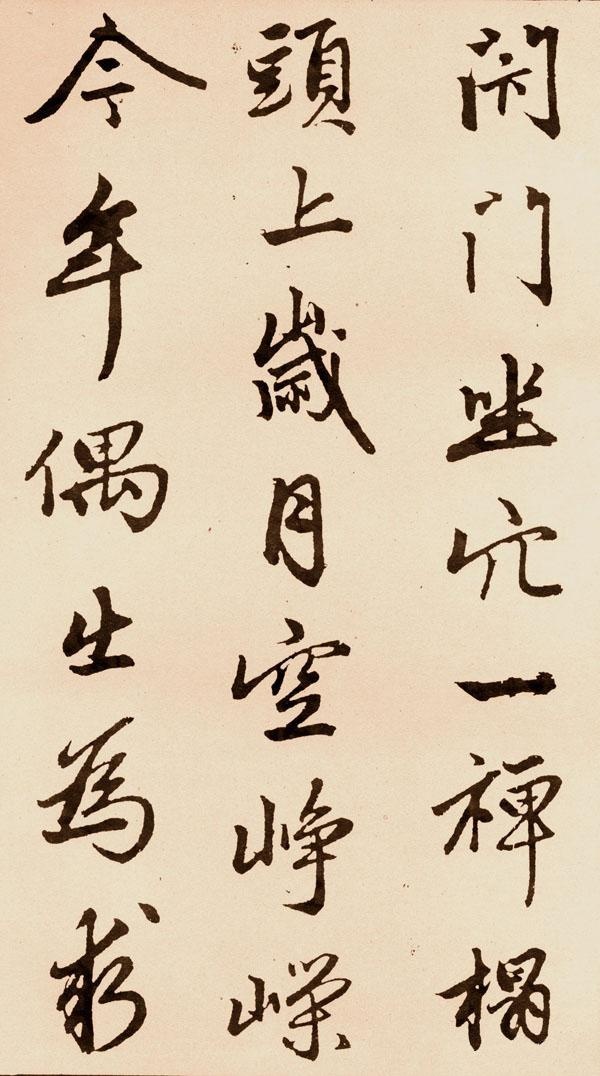 閉門坐穴一禪榻
頭上歲月空崢嶸
今年偶出為求